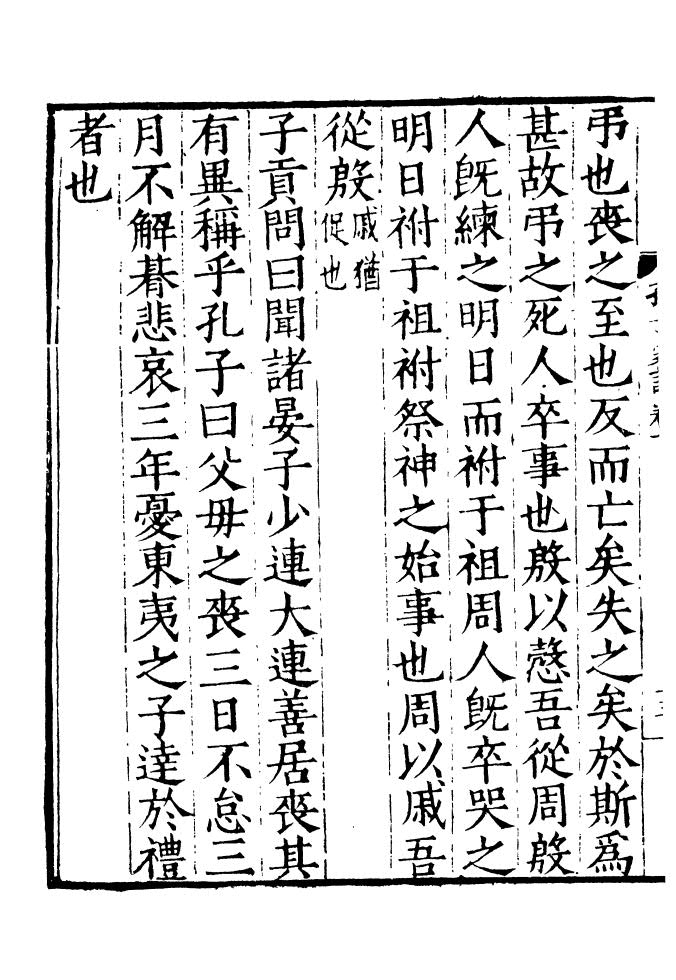 弔也喪之至也反而亡矣失之矣於斯為
甚故弔之死人卒事也殷以慤吾從周殷
人既練之明日而祔于祖周人既卒哭之
明日祔于祖祔祭神之始事也周以戚吾
從殷戚猶促也
子貢問曰聞諸晏子少連大連善居喪其
有異稱乎孔子曰父毋之喪三日不怠三
月不解朞悲哀三年憂東夷之子達於禮
者也